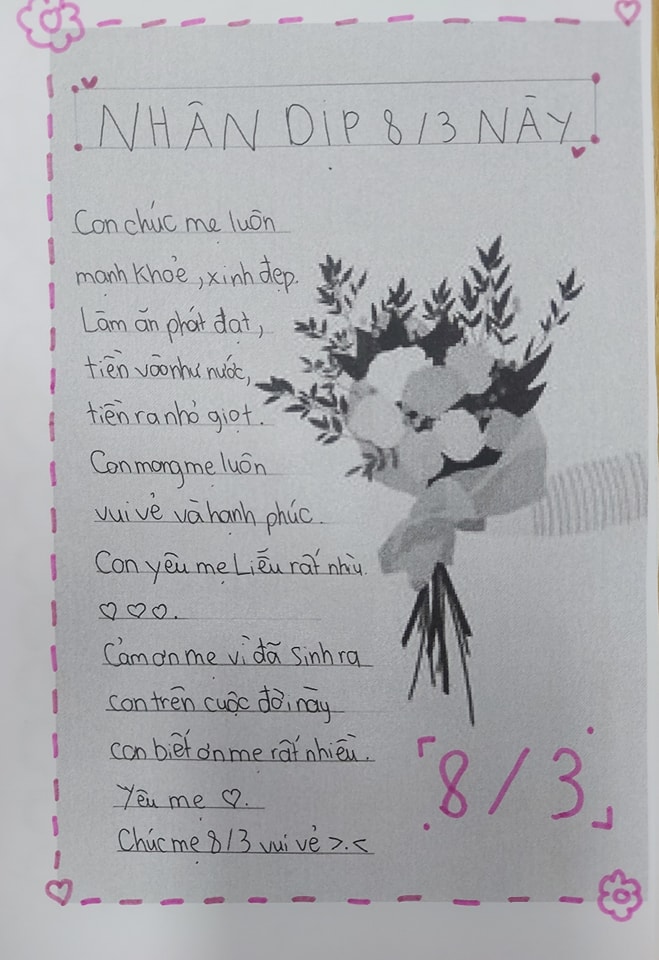 NHÂN DỊP 8/3 NÀY
Con chúc mẹ luôn
mạnh khoẻ, xinh đẹp.
Làm ăn phát đạt,
tiền vào như nước,
tiền ra nhỏ giọt.
Con mong mẹ luôn
vui vẻ và hạnh phúc.
Con yêu mẹ Liễu rất nhìu.
♡♡♡.
Cảm ơn mẹ vì đã sinh ra
con trên cuộc đời này
con biết ơn mẹ rất nhiều.
Yêu mẹ ♡.
Chúc mẹ 8/3 vui vẻ >.<
8/3